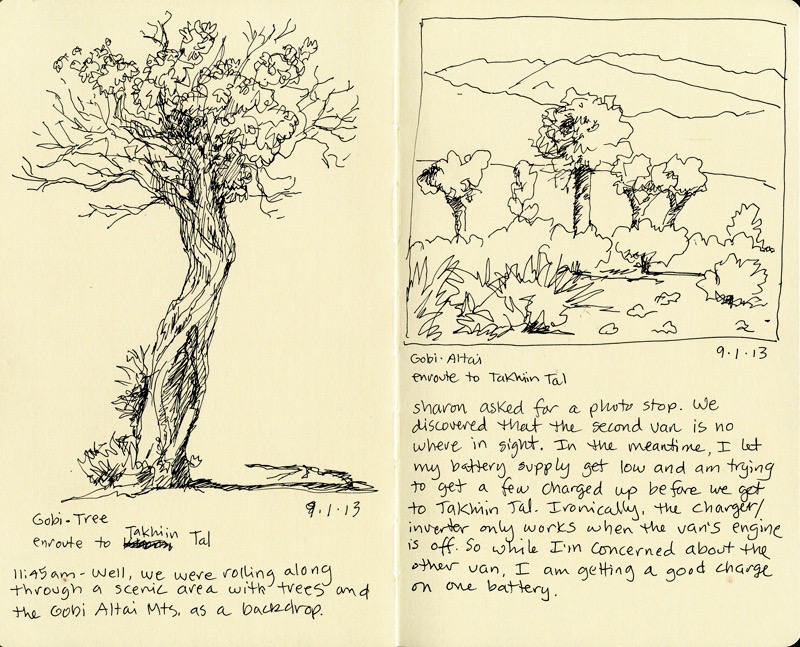 9.1.13
Gobi-Tree
enroute to Takhiin Tal
11:45am - Well, we were rolling along
through a scenic area with trees and
the Gobi Altai Mts. as a backdrop.
9.1.13
Gobi-Altai
enroute to Takhiin Tal
sharon asked for a photo stop. We
discovered that the second van is no
where in sight. In the meantime, I let
my battery supply get low and am trying
to get a few charged up before we get
to Takhiin Tal. Ironically, the charger/
invertor only works when the van's engine
is off. So while I'm concerned about the
other van, I am getting a good charge
on one battery.